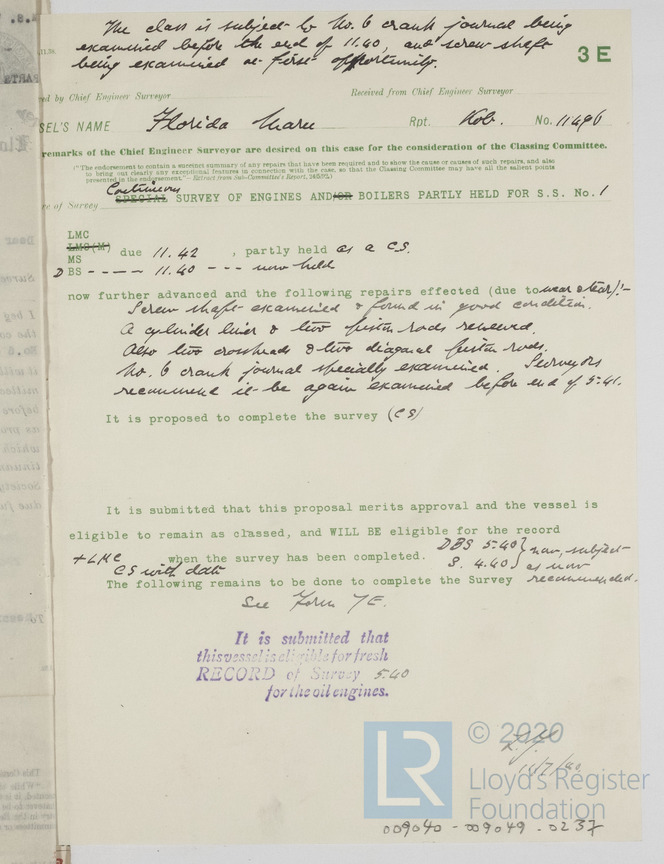 The class is subject to No. 6 crank journal being
examined before the end of 11.40, and screw shaft
being examined at first opportunity.
3 E
ed by Chief Engineer Surveyor
Received from Chief Engineer Surveyor
SEL'S NAME Florida Maru Rpt. Kob. No. 11496
remarks of the Chief Engineer Surveyor are desired on this case for the consideration of the Classing Committee.
("The endorsement to contain a succinct summary of any repairs that have been required and to show the cause or causes of such repairs, and also
to bring out clearly any exceptional features in connection with the case, so that the Classing Committee may have all the salient points
presented in the endorsement."—Extract from Sub-Committee's Report,
Continuous
re of Survey SPECIAL SURVEY OF ENGINES AND/OR BOILERS PARTLY HELD FOR S.S. No. 1
LMC
LMC(M)
MS due 11.42 , partly held as a CS.
DBS - - - - 11.40 - - - now held
now further advanced and the following repairs effected (due to wear & tear):-
Screw shaft examined & found in good condition.
A cylinder liner & two piston rods renewed.
Also two crossheads & two diagonal piston rods.
No. 6 crank journal specially examined. Surveyors
recommend it be again examined before end of 5.41.
It is proposed to complete the survey (CS)
It is submitted that this proposal merits approval and the vessel is
eligible to remain as classed, and WILL BE eligible for the record
+LMC when the survey has been completed. DBS 5.40 } now, subject
CS with date S. 4.40 } as now
The following remains to be done to complete the Survey recommended.
See Form 7E.
It is submitted that
this vessel is eligible for fresh
RECORD of Survey 5.40
for the oil engines.
© 2020
LR
Lloyd's Register
Foundation
009040 - 009049 - 0237